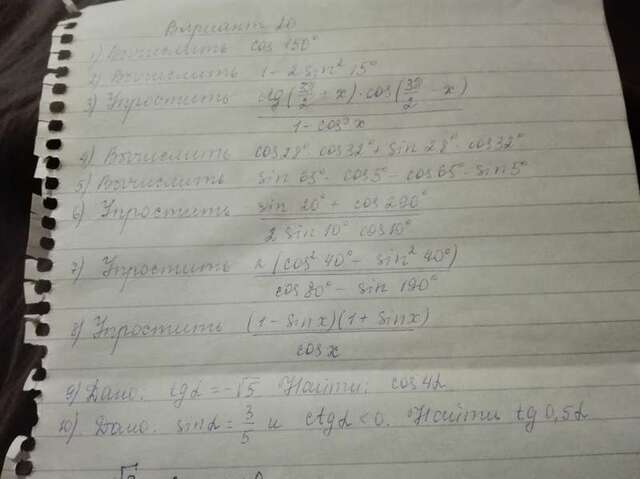 Вариант 20
1) Вычислить cos 150°
2) Вычислить 1 - 2 sin² 15°
3) Упростить ctg(3π/2 - x) · cos(3π/2 - x) / 1 - cos² x
4) Вычислить cos 28° · cos 32° + sin 28° · cos 32°
5) Вычислить sin 65° · cos 5° - cos 65° · sin 5°
6) Упростить sin 20° + cos 290° / 2 sin 10° cos 10°
7) Упростить 2 (cos² 40° - sin² 40°) / cos 80° - sin 190°
8) Упростить (1 - sin x)(1 + sin x) / cos x
9) Дано: tg α = -√5 Найти: cos 4α
10) Дано: sin α = 3/5 и ctg α < 0. Найти tg 0,5α